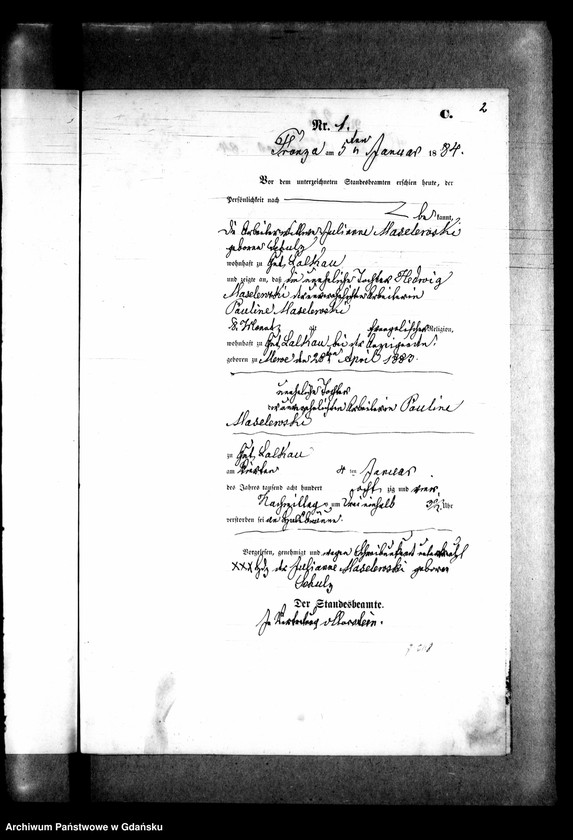 2
C.
Nr. 1.
Franza am 5 ten Januar 1884.
Vor dem unterzeichneten Standesbeamten erschien heute, der
Persönlichkeit nach
be kannt,
die Arbeiterwittwe Julianne Maselewski
geborene Schulz
wohnhaft zu Gut Lalkau
und zeigte an, daß die uneheliche Tochter Hedwig
Maselewski der unverehelichten Arbeiterin
Pauline Maselewski
8 Monat alt evangelischer Religion,
wohnhaft zu Gut Lalkau bei der Anzeigerin
geboren zu Mewe den 28ten April 1883.
uneheliche Tochter
der unverehelichten Arbeiterin Pauline
Maselewski
zu Gut Lalkau
am ten Januar
des Jahres tausend acht hundert acht zig und vier
Nachmittags um dreieinhalb 3½ Uhr
verstorben sei
Vorgelesen, genehmigt und wegen Schreibunkunde unterkreuzt
XXX Hdz. der Julianne Maselewski geborene
Schulz
Der Standesbeamte.
In Vertretung
Archiwum Państwowe w Gdańsku